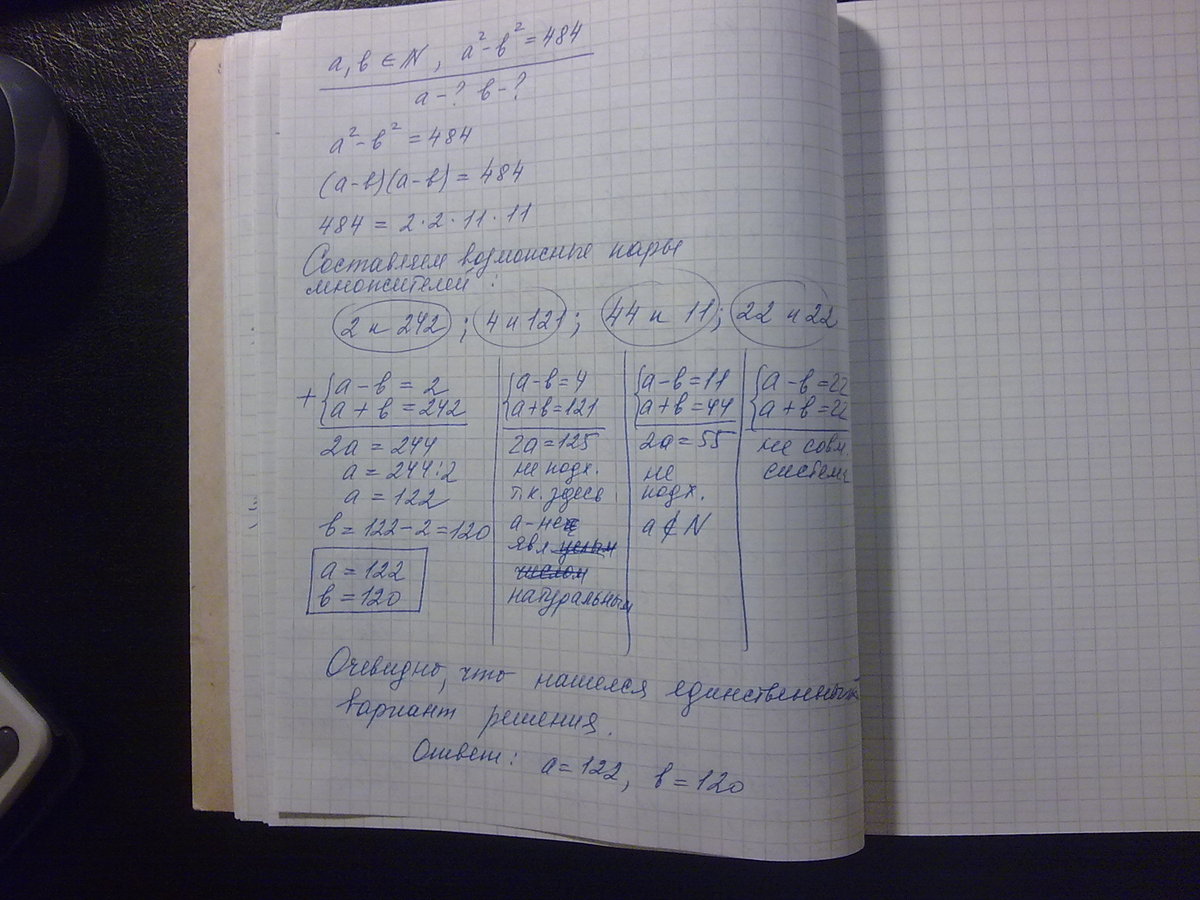 a, в ∈ N, a² - в² = 484
a - ? в - ?
a² - в² = 484
(a - в)(a - в) = 484
484 = 2 · 2 · 11 · 11
Составляем возможные пары
множителей:
2 и 242; 4 и 121; 44 и 11; 22 и 22
+ { a - в = 2
a + в = 242
2a = 244
a = 244 : 2
a = 122
в = 122 - 2 = 120
a = 122
в = 120
{ a - в = 4
a + в = 121
2a = 125
не подх.
т.к. здесь
a - не
явл целым
числом
натуральным
{ a - в = 11
a + в = 44
2a = 55
не
подх.
a ∉ N
{ a - в = 22
a + в = 22
не совм.
система
Очевидно, что нашелся единственный
вариант решения.
Ответ: a = 122, в = 120